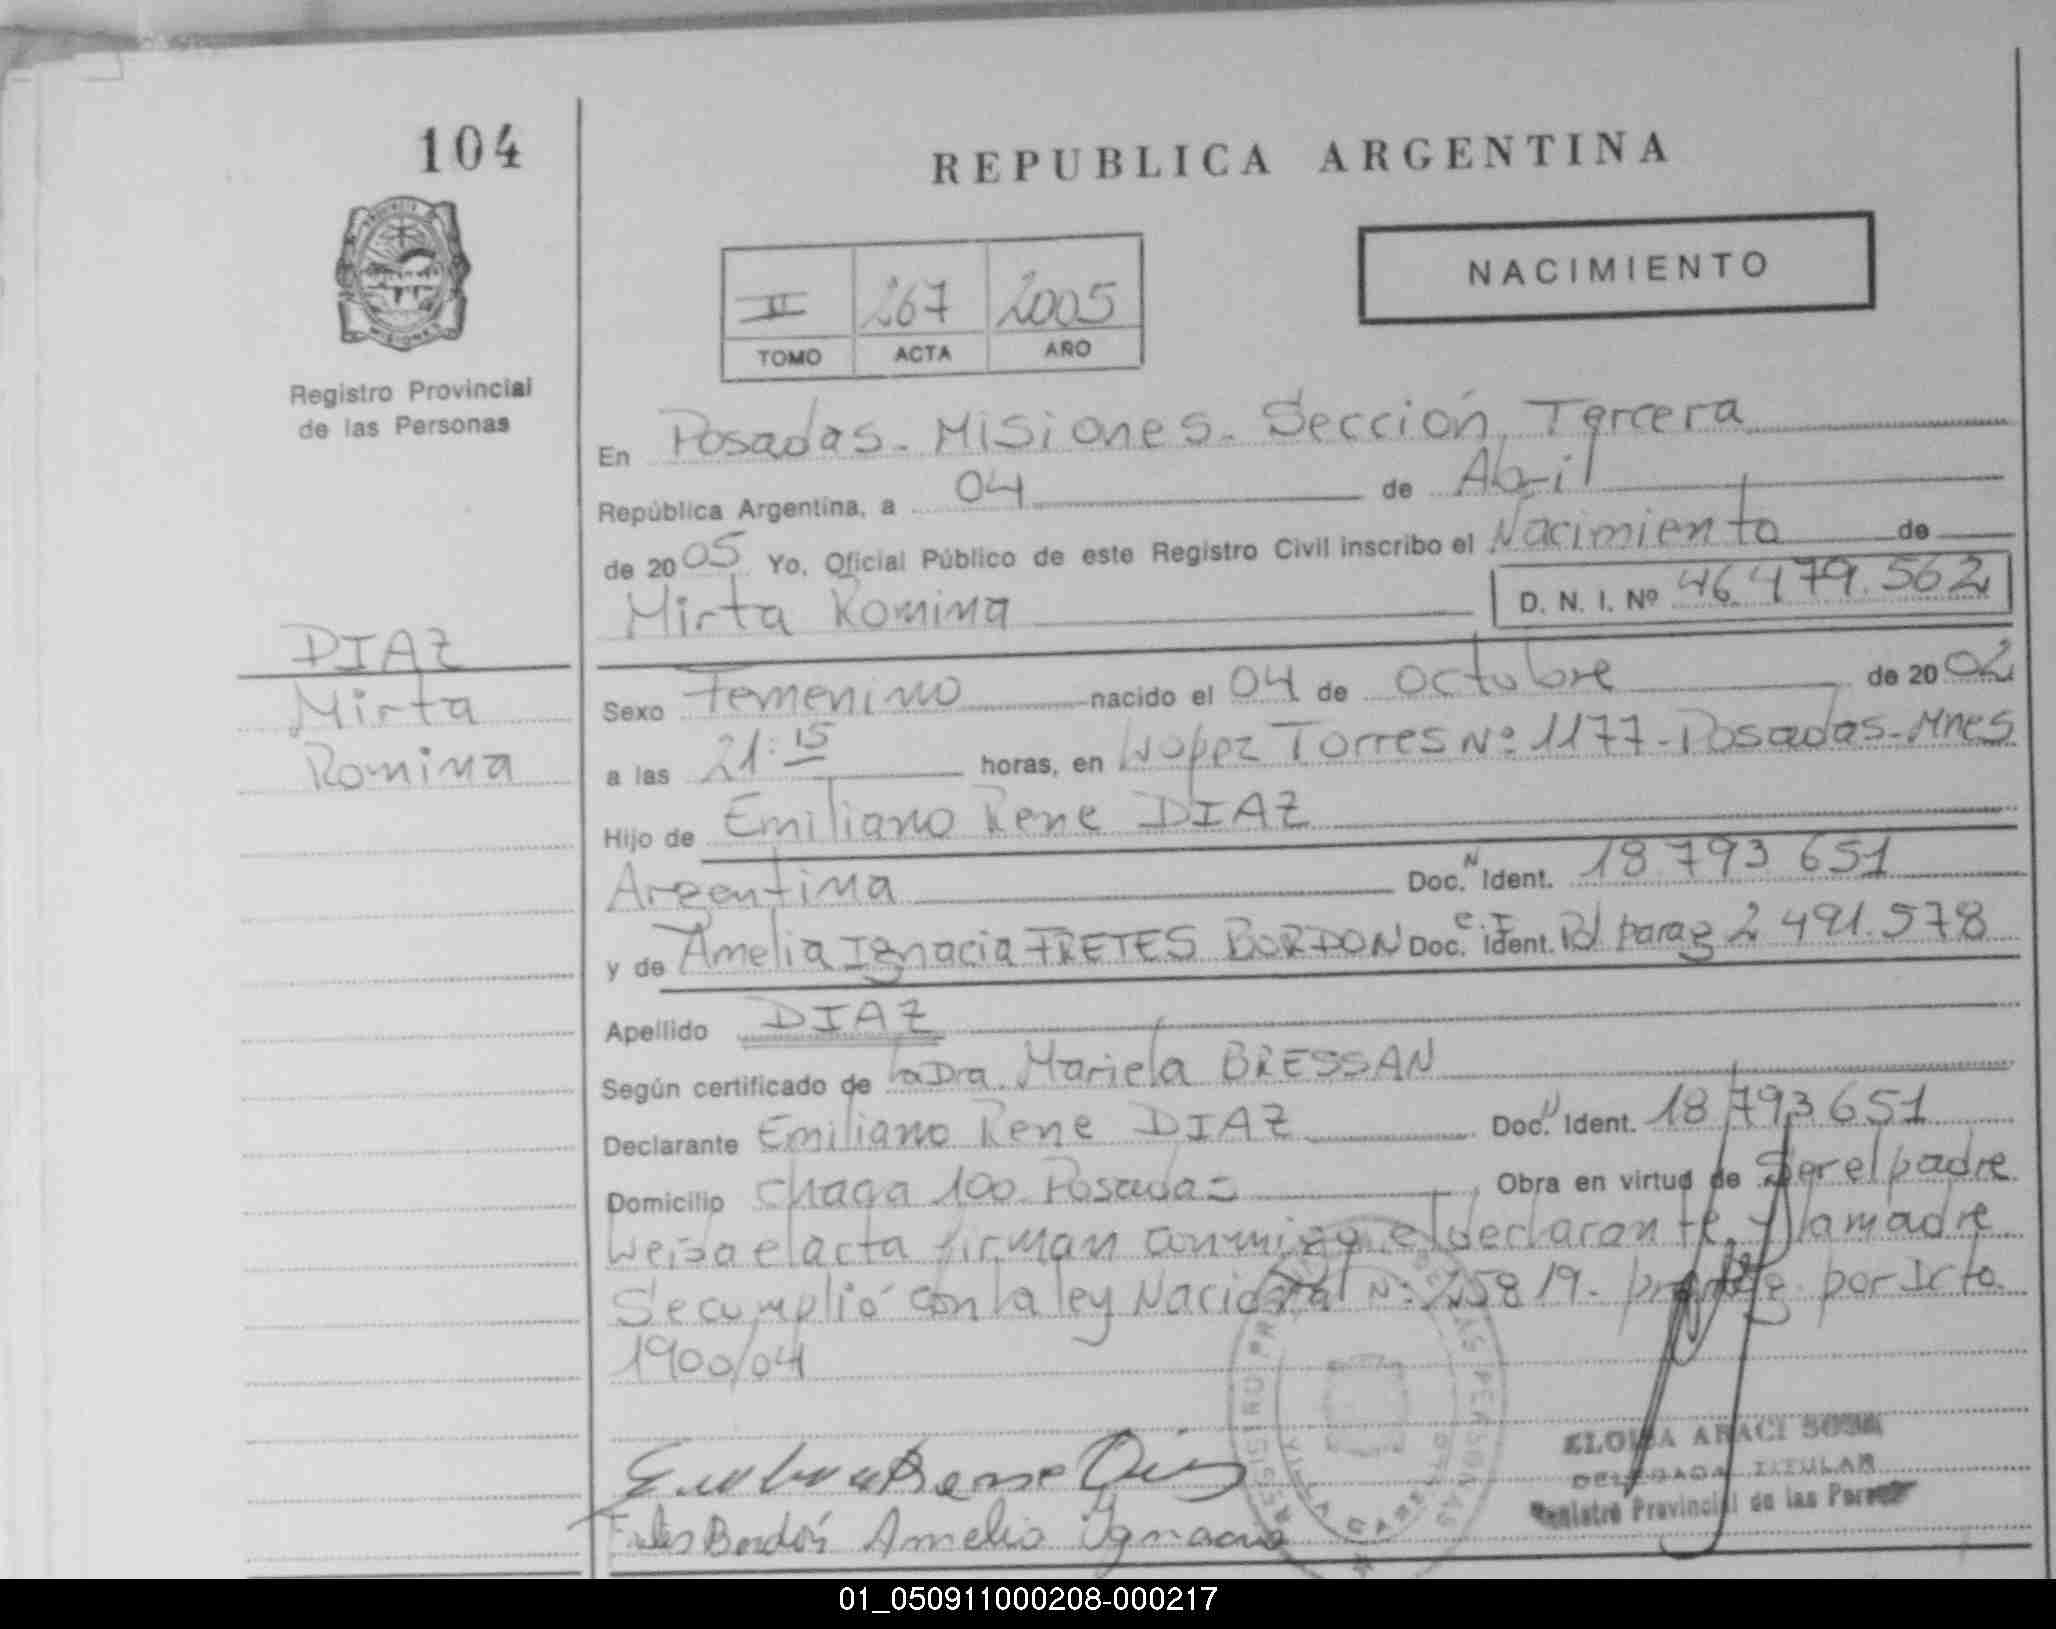 104
REPUBLICA ARGENTINA
NACIMIENTO
II 267 2005
TOMO ACTA AÑO
Registro Provincial
de las Personas
En Posadas - Misiones - Sección Tercera
República Argentina, a 04 de Abril
de 2005 Yo, Oficial Público de este Registro Civil inscribo el Nacimiento de
Mirta Romina D. N. I. Nº 46.479.562
DIAZ
Mirta
Romina
Sexo Femenino nacido el 04 de octubre de 2002
a las 21:15 horas, en López Torres Nº 1177 - Posadas - Mnes
Hijo de Emiliano Rene DIAZ
Argentina Doc. N Ident. 18 793 651
y de Amelia Ignacia FRETES BORDON Doc. C.I. Ident. Pol parag 2 491.578
Apellido DIAZ
Según certificado de la Dra Mariela BRESSAN
Declarante Emiliano Rene DIAZ Doc. Ident. 18 793 651
Domicilio chaga 100 Posadas Obra en virtud de Ser el padre
Leida el acta firman conmigo el declarante y la madre
Se cumplió con la ley Nacional Nº 25819. por Dcto
1900/04
Emiliano Rene Diaz
Fretes Bordón Amelia Ignacia
ELOISA ARACI SOSA
DELEGADA TITULAR
Registro Provincial de las Personas
01_050911000208-000217